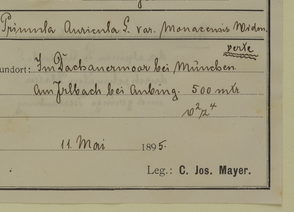 Primula Auricula L. var. Monacensis Widm.
verte
undort: Im Dachauermoor bei München
am Irlbach bei Aubing. 500 mtr
v²z⁴
11 Mai 1895.
Leg.: C. Jos. Mayer.